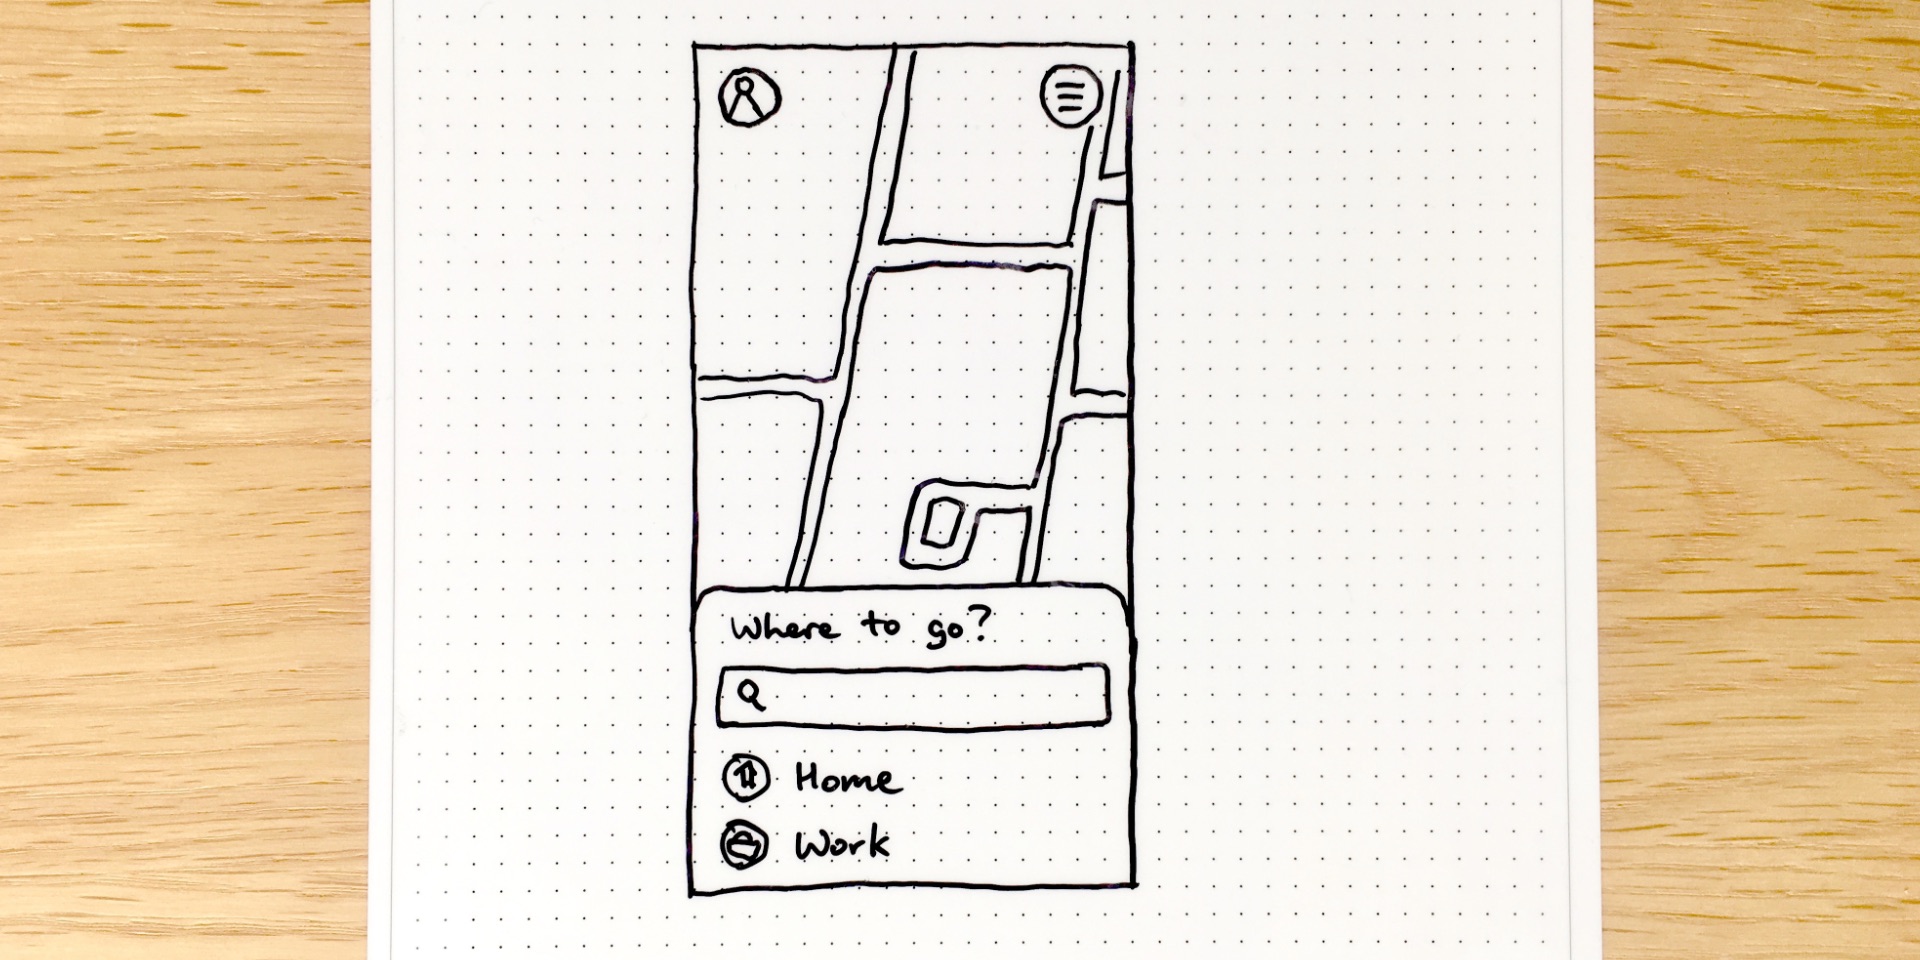 Where to go?
Home
Work